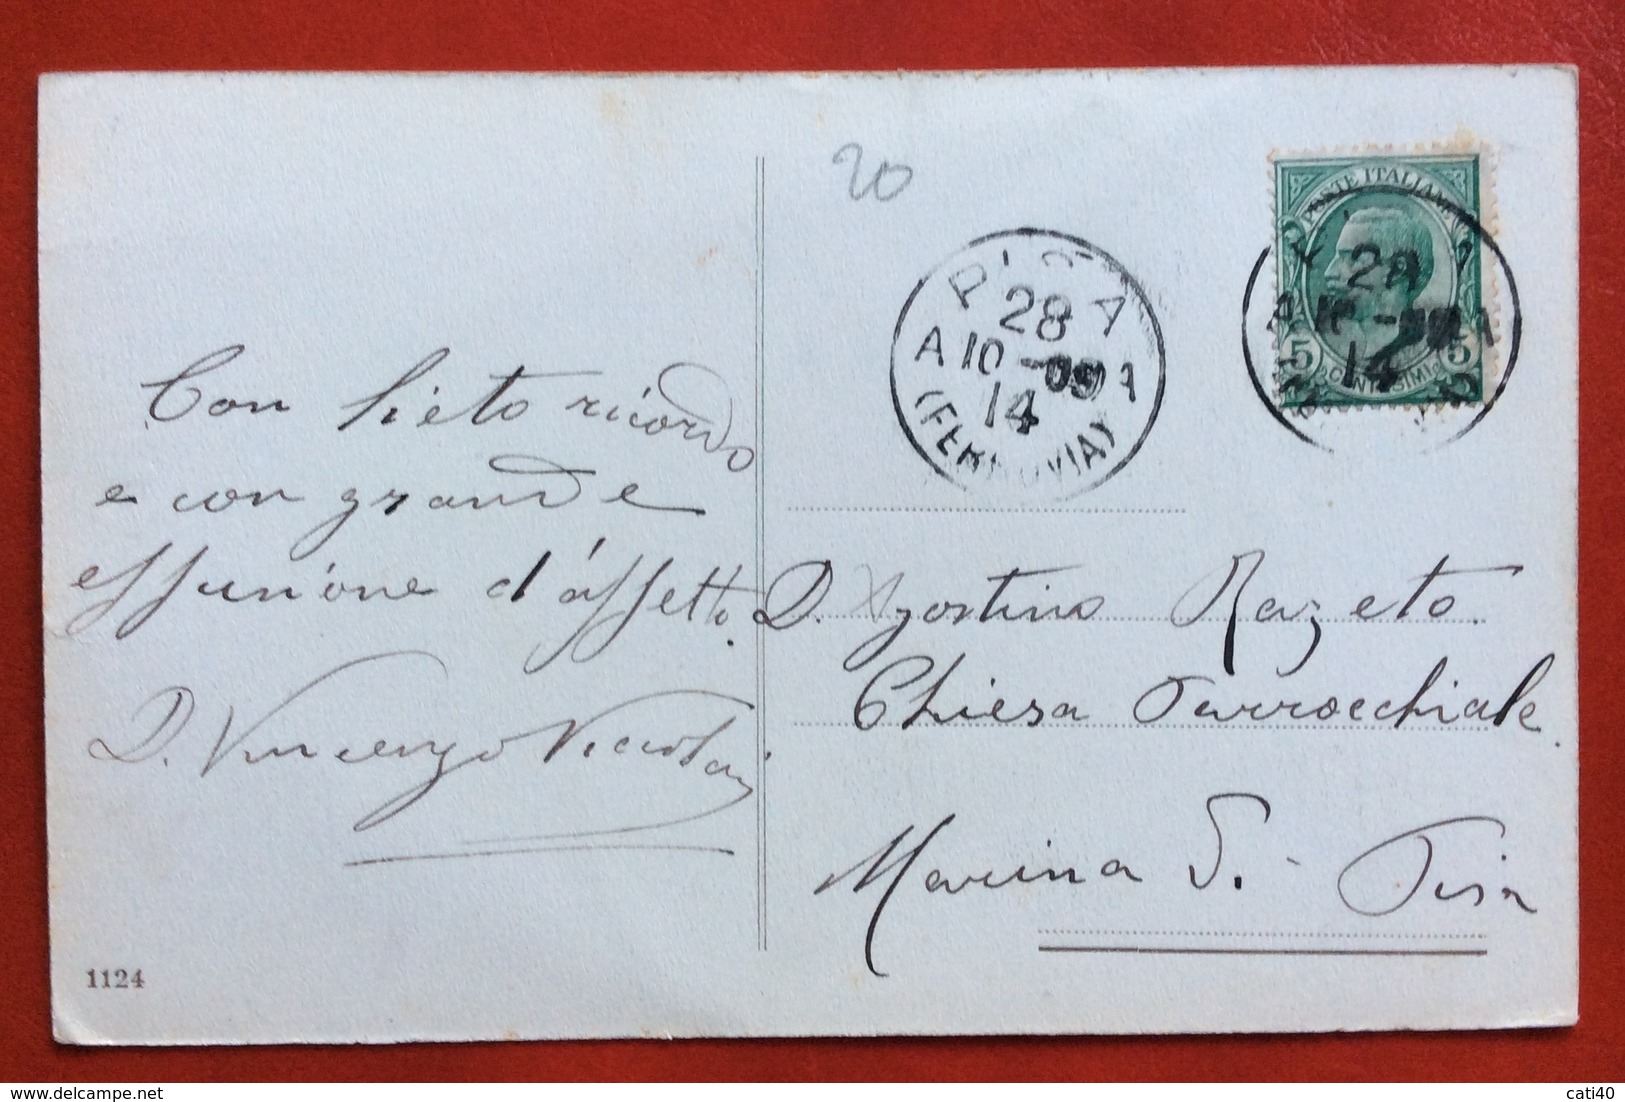 Con lieto ricordo
e con grande
effusione d'affetto.
D. Vincenzo
1124
20
PISA
28
A 10
14
(FERROVIA)
POSTE ITALIANE
28
14
5 CENTESIMI 5
D. Agostino Razeto.
Chiesa Parrocchiale.
Marina S. - Pisa
cati40